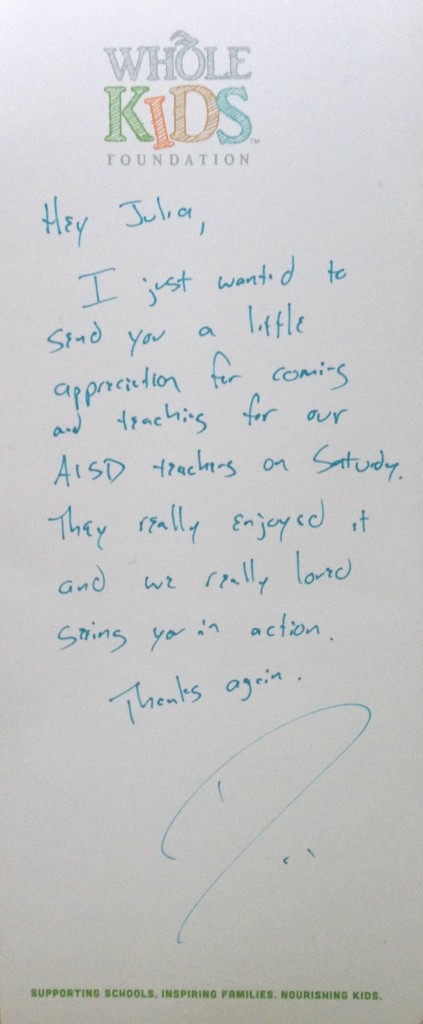 WHOLE
KIDS™
FOUNDATION
Hey Julia,
I just wanted to
send you a little
appreciation for coming
and teaching for our
AISD teachers on Saturday.
They really enjoyed it
and we really loved
seeing you in action.
Thanks again.
SUPPORTING SCHOOLS. INSPIRING FAMILIES. NOURISHING KIDS.